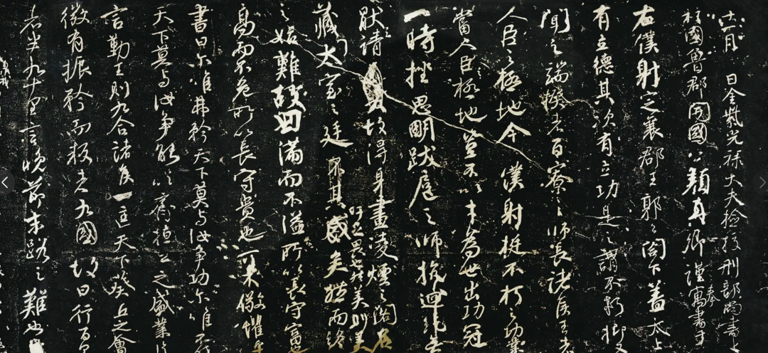 十一月 日金紫光祿大夫檢校刑部尚書上
柱國魯郡開國公顏真卿謹奉書于
右僕射定襄郡王郭公閤下蓋太上
有立德其次有立功是之謂不朽抑又
聞之端揆者百寮之師長諸侯王者
人臣之極地今僕射挺不朽之功業
當人臣極地豈不以才為世出功冠
一時挫思明跋扈之師抗迴紇無
猒之請故得身畫凌煙之閣名
藏太室之廷吁足畏也然美則美矣然而終
之始難故曰滿而不溢所以長守富也
高而不危所以長守貴也可不儆懼乎
書曰爾唯弗矜天下莫與汝爭功爾唯不伐
天下莫與汝爭能以齊桓公之盛業片
言勤王則九合諸侯一匡天下葵丘之會
微有振矜而叛者九國故曰行百里
者半九十里言晚節末路之難也